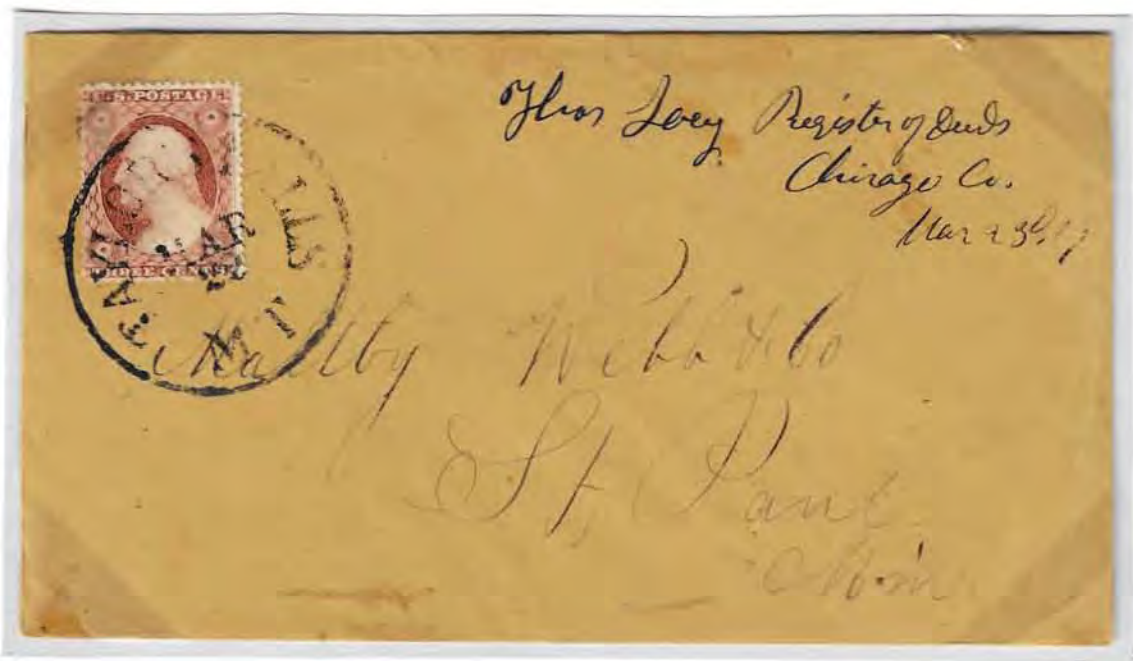 U.S. POSTAGE
THREE CENTS
TAYLORS FALLS
MAR
M.T.
Register of Deeds
Chisago Co.
Mar 23d
Webb & Co
St Paul
Min